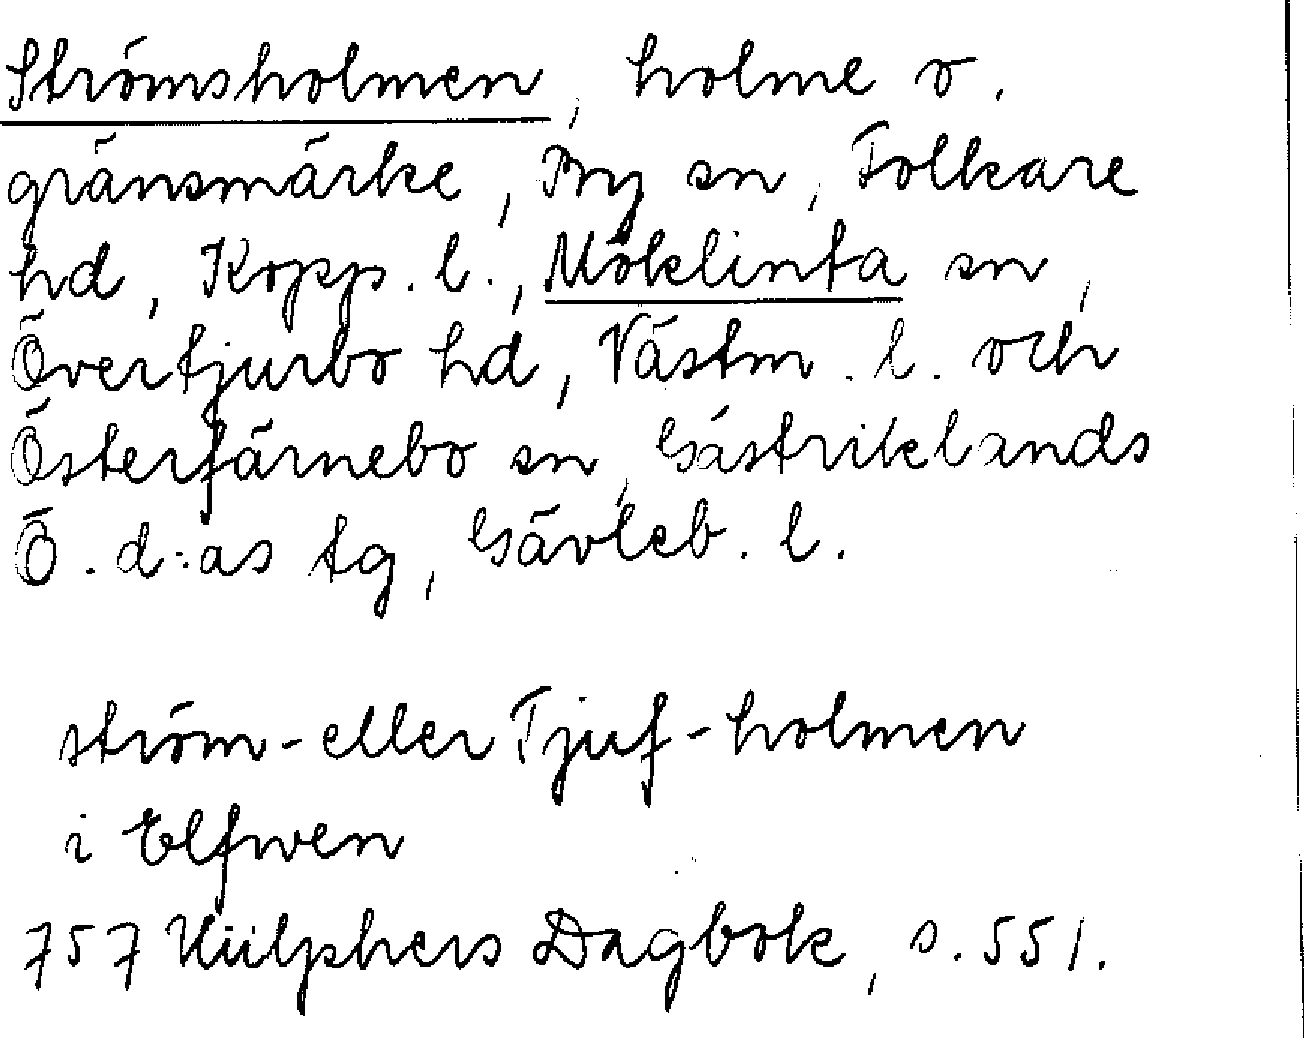 Strömsholmen, holme o.
gränsmärke, By sn, Folkare
hd, Kopp. l., Möklinta sn,
Övertjurbo hd, Västm. l. och
Österfärnebo sn, Gästriklands
Ö. d:as tg, Gävleb. l.
ström- eller Tjuf-holmen
i Elfwen
757 Hülphers Dagbok, s. 551.